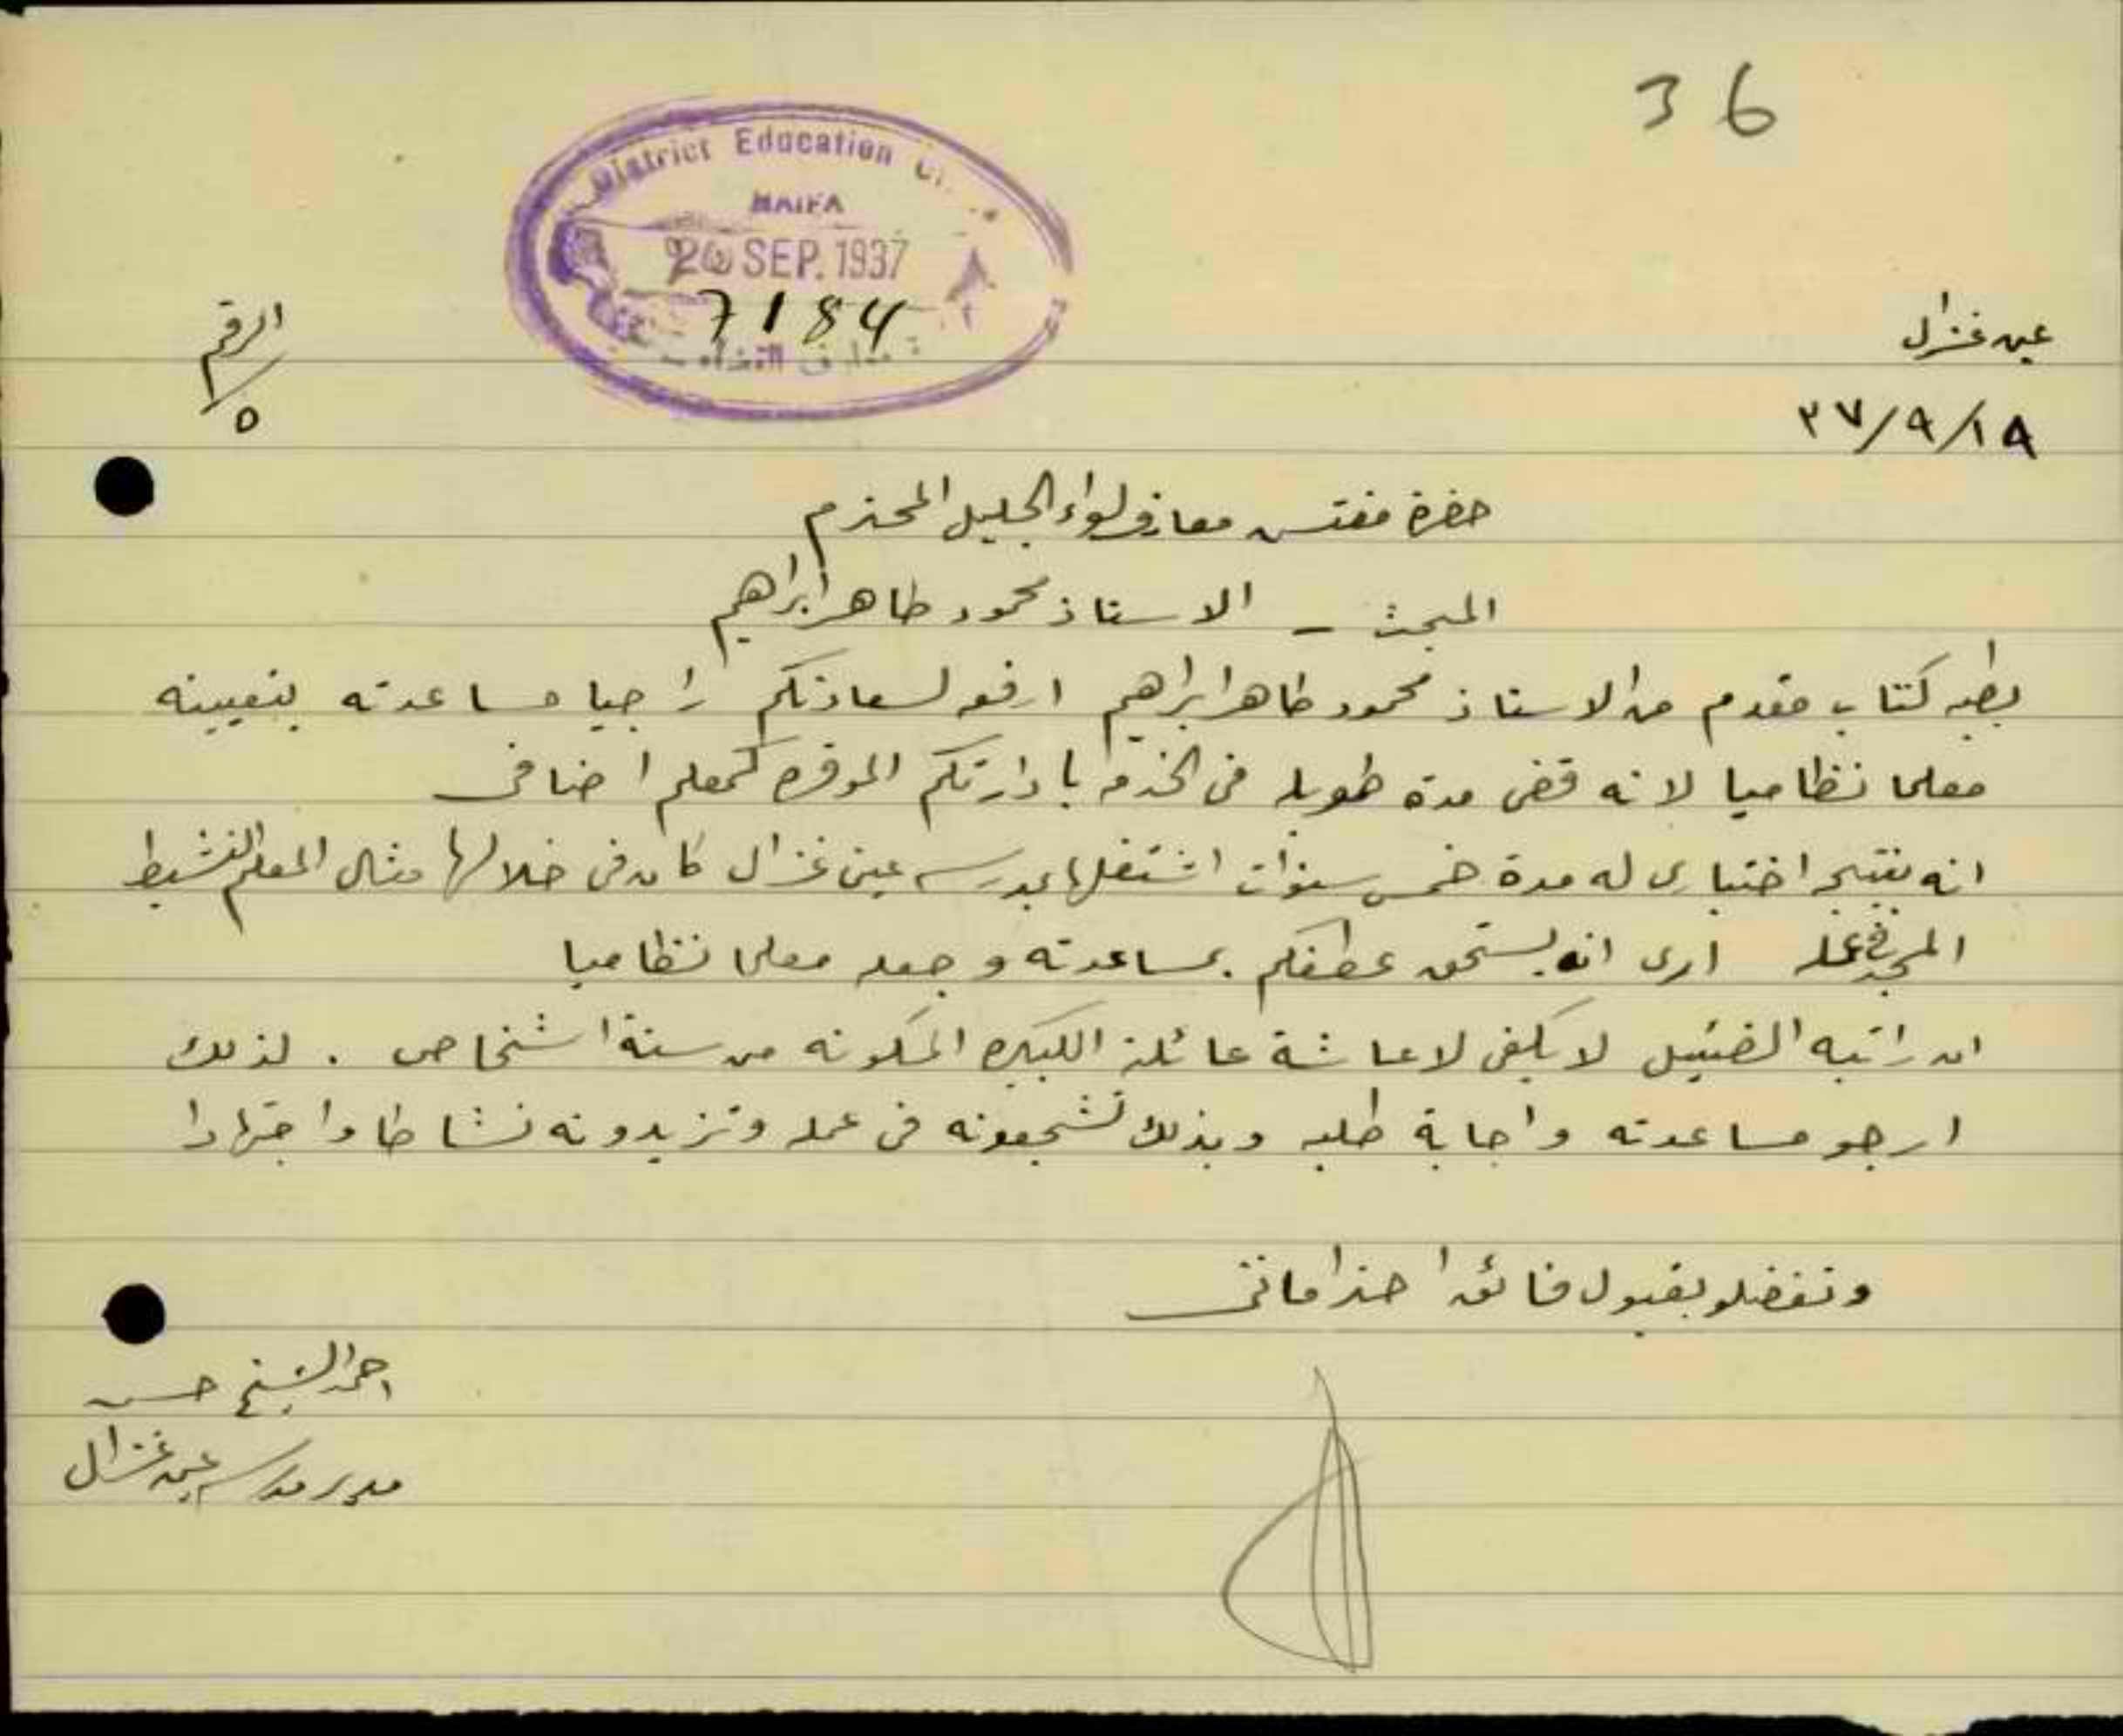 36
District Education
HAIFA
20 SEP. 1937
7184
معارف القضاء
عين غزال
الرقم
٥
٣٧/٩/١٩
حضرة مفتش معارف لواء الجليل المحترم
المبحث - الاستاذ محمود طاهر ابراهيم
بطيه كتاب مقدم من الاستاذ محمود طاهر ابراهيم ارفعه لسعادتكم راجيا مساعدته بتعيينه
معلما نظاميا لانه قضى مدة طويله في الخدمه بادارتكم الموقره كمعلم اضافي
انه نتيجه اختباري له مدة خمس سنوات اشتغلها بمدرسه عين غزال كان في خلالها مثال المعلم النشيط
المجد في عمله ارى انه يستحق عطفكم بمساعدته وجعله معلما نظاميا
ان راتبه الضئيل لا يكفي لاعاشة عائلته الكبيره المكونه من ستة اشخاص . لذلك
ارجو مساعدته واجابة طلبه وبذلك تشجعونه في عمله وتزيدونه نشاطا واجتهادا
وتفضلو بقبول فائق احتراماتي
احمد الشيخ حسن
مدير مدرسه عين غزال